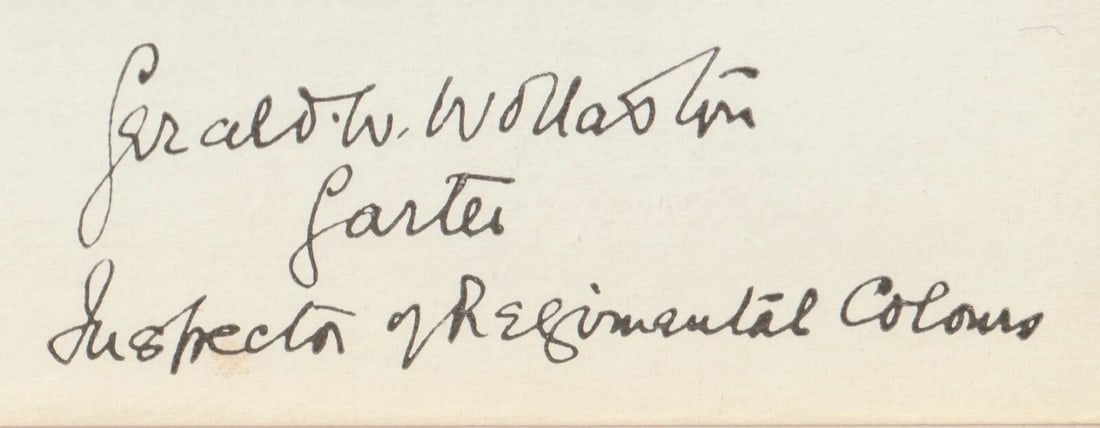 Gerald. W. Wollaston
Garter
Inspector of Regimental Colours